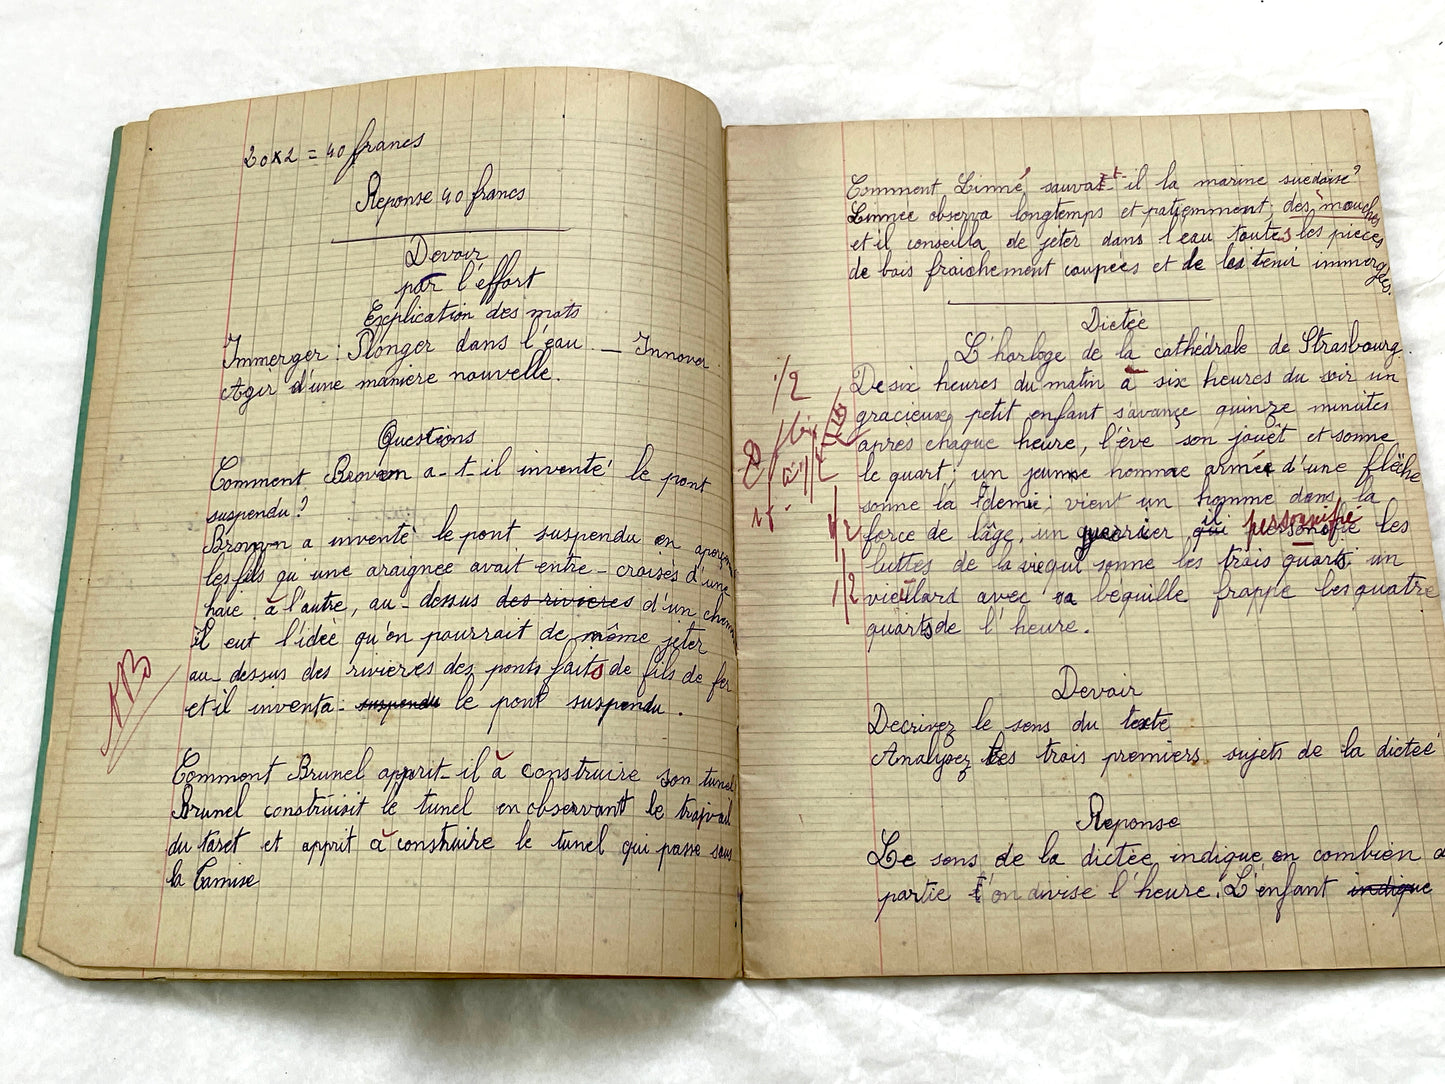 20x2 = 40 francs
Reponse 40 francs
Devoir
par l'effort
Explication des mots
Immerger : Plonger dans l'éau _ Innover.
Agir d'une manière nouvelle.
Questions
Comment Brown a-t-il inventé le pont
suspendu?
Brown a inventé le pont suspendu en
les fils qu'une araignée avait entre-croisés d'une
haie à l'autre, au-dessus des rivieres d'un
il eut l'ideé qu'on pourrait de même jeter
au-dessus des rivieres des ponts faits de fils de fer
et il inventa suspendu le pont suspendu.
TB
Comment Brunel apprit-il à construire son tunel
Brunel construisit le tunel en observant le travail
du taret et apprit à construire le tunel qui passe sous
la Tamise
Comment Linné sauvat-il la marine suédoise?
Linnée observa longtemps et patiemment, des mouches
et il conseilla de jeter dans l'eau toutes les pieces
de bois fraichement coupées et de les tenir immergées.
Dicteé
L'horloge de la cathédrale de Strasbourg.
De six heures du matin à six heures du soir un
gracieux petit enfant s'avançe quinze minutes
après chaque heure, lève son jouet et sonne
le quart; un jeune homme armé d'une flèche
sonne la demie; vient un homme dans la
force de lâge, un guerrier qui il personnifié personofie les
luttes de la vie qui sonne les trois quarts un
vieillard avec sa béquille frappe les quatre
quarts de l'heure.
1/2
1/2
1/2
Devoir
Decrivez le sens du texte
Analysez les trois premiers sujets de la dicteé
Reponse
Le sens de la dictée indique en combien
partie l'on divise l'heure. L'enfant indique